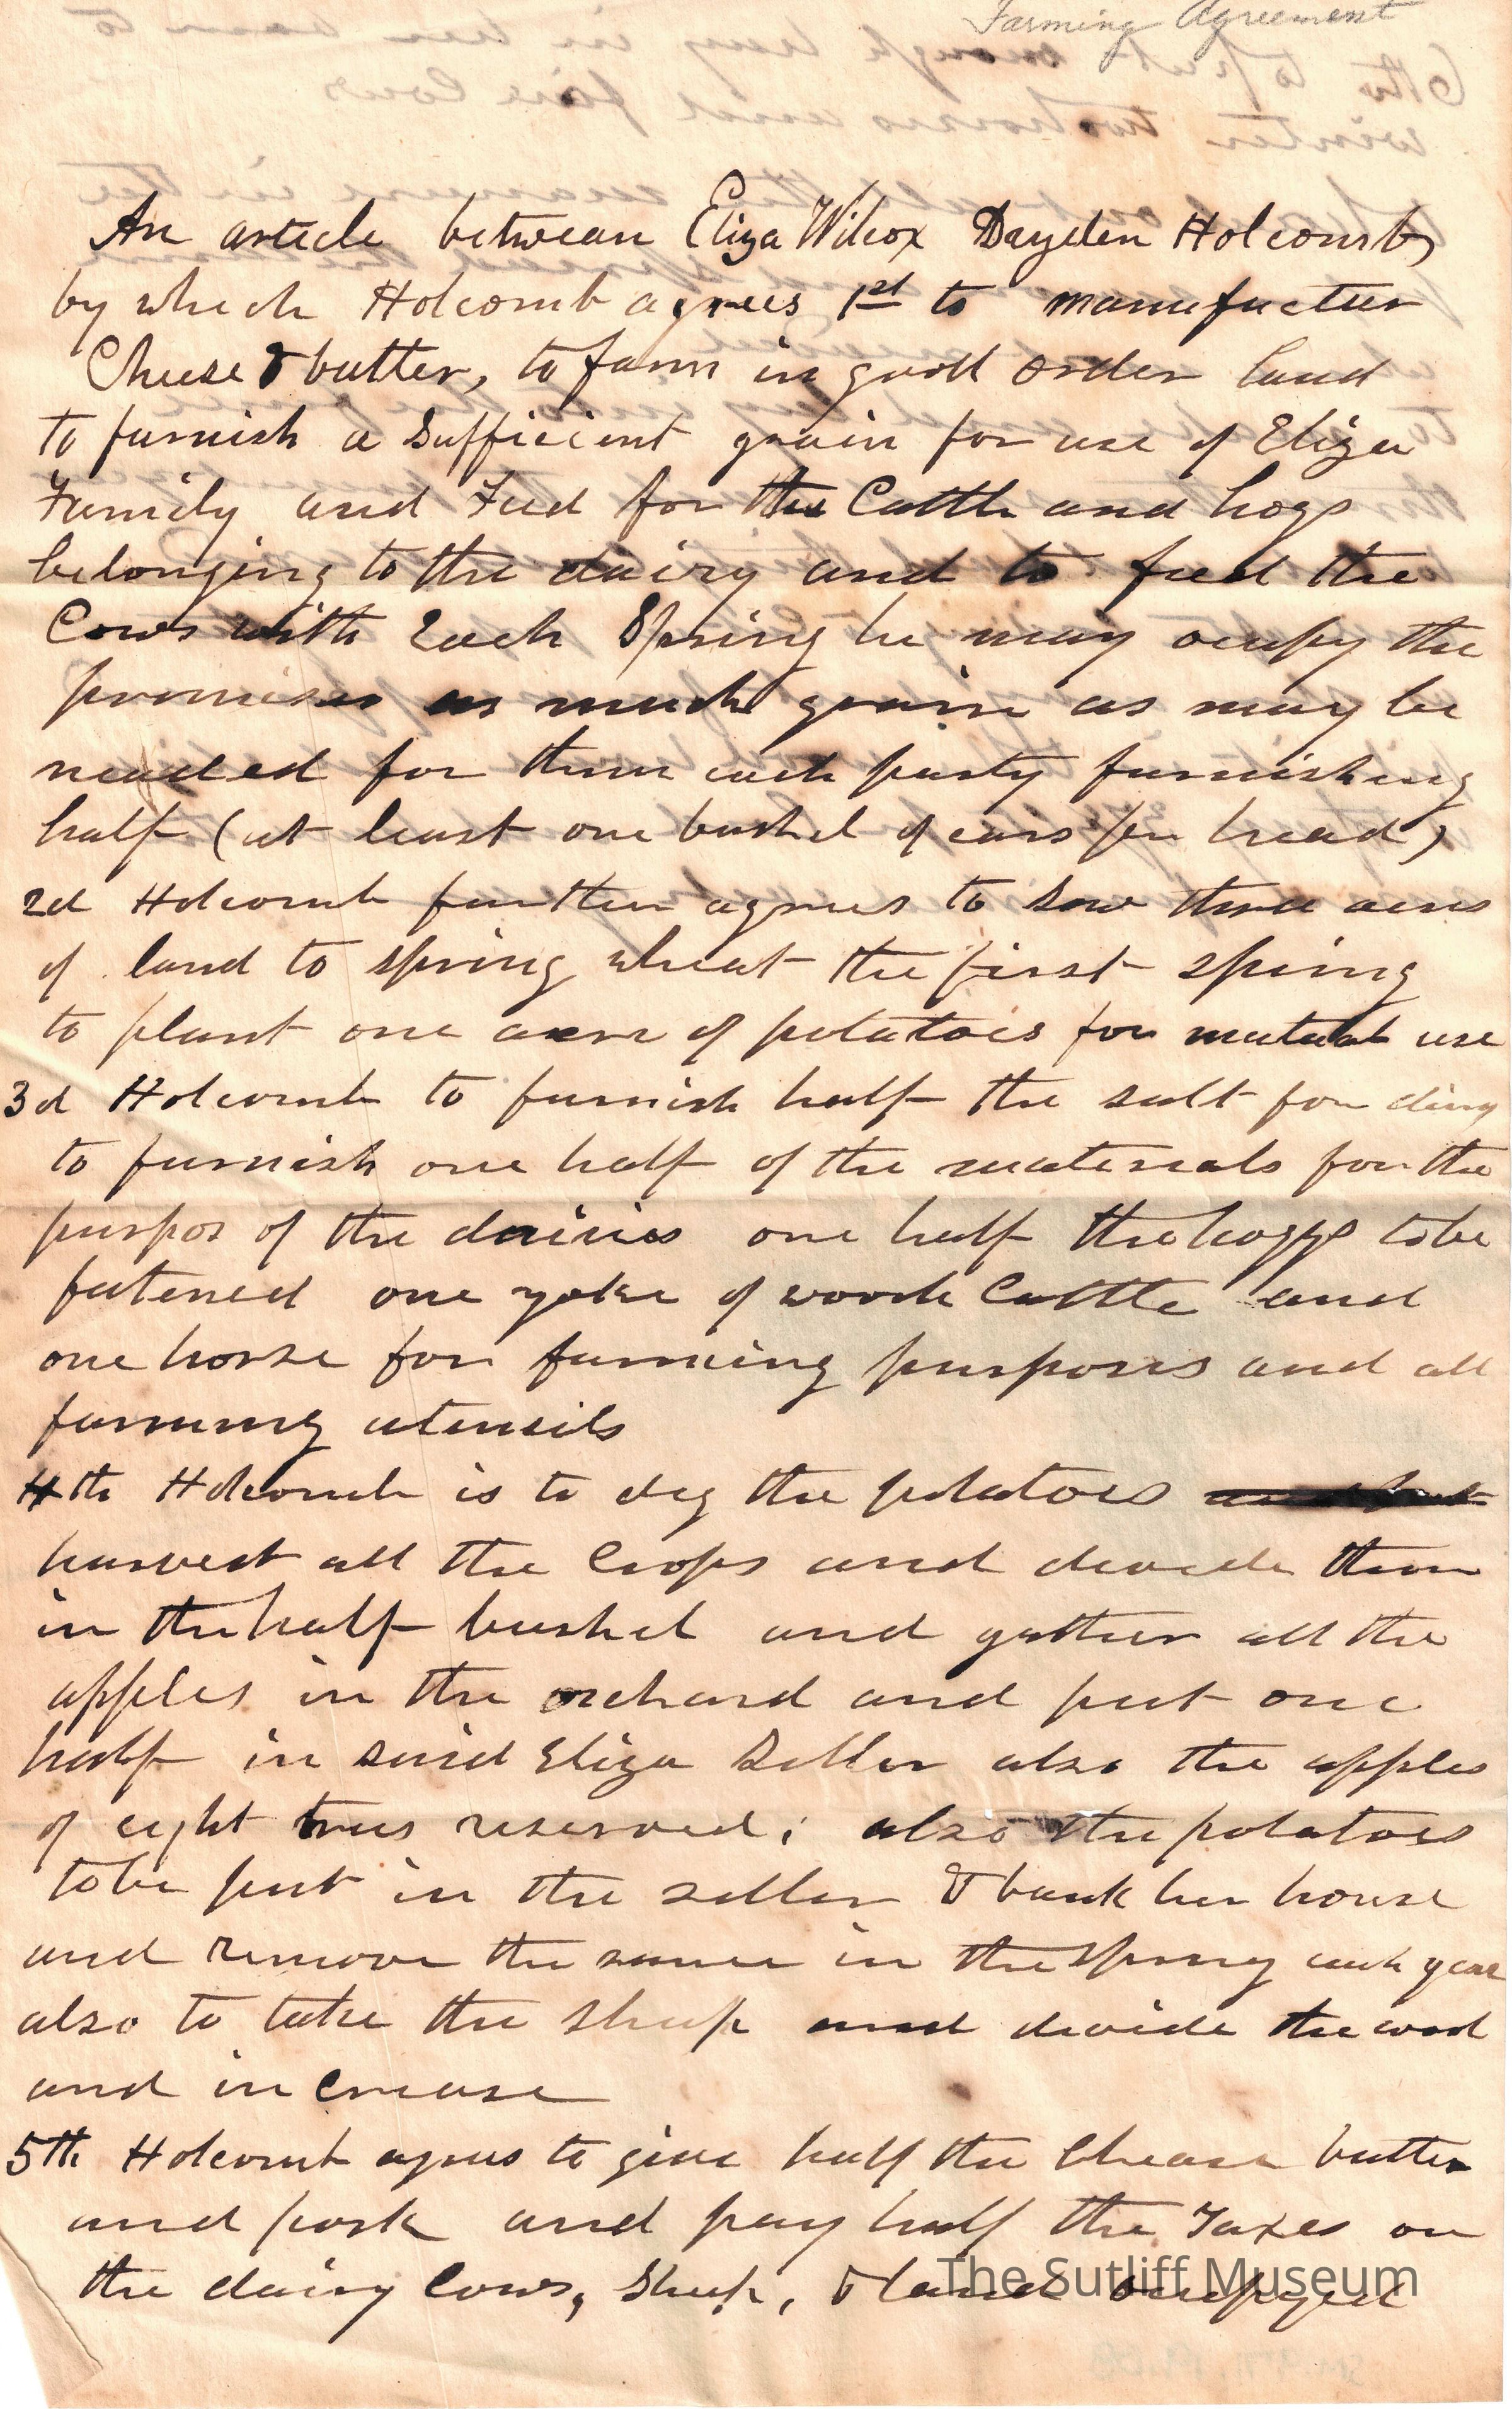 Farming Agreement
An article between Eliza Wilcox Dayden Holcomb,
by which Holcomb agrees 1st to manufactur
Cheese & butter, to farm in good order land
to furnish a Sufficient grain for use of Eliza
Family and Feed for the Cattle and hogs
belonging to the dairy and to feed the
Cows with Each Spring he may ocupy the
premises as much grain as may be
neaded for them each party furnishing
half (at least one bushel of ears per head)
2d Holcomb further agrees to sow three acres
of land to spring wheat the first spring
to plant one acre of potatoes for mutual use
3d Holcomb to furnish half the salt for dairy
to furnish one half of the materials for the
purpos of the dairies one half the hoggs to be
fatened one yoke of work Cattle and
one horse for farming purposes and all
farming utensils
4th Holcomb is to dig the potatoes
harvest all the Crops and devide them
in the half bushel and gather all the
apples in the orchard and put one
half in said Eliza Seller also the apples
of eight trees reserved; also the potatoes
to be put in the seller & bank her house
and remove the same in the spring each year
also to take the sheep and devide the wool
and in crease
5th Holcomb agrees to give half the Chease butter
and pork and pay half the Taxes on
the dairy Cows, Sheep, & land ocupyed
The Sutliff Museum